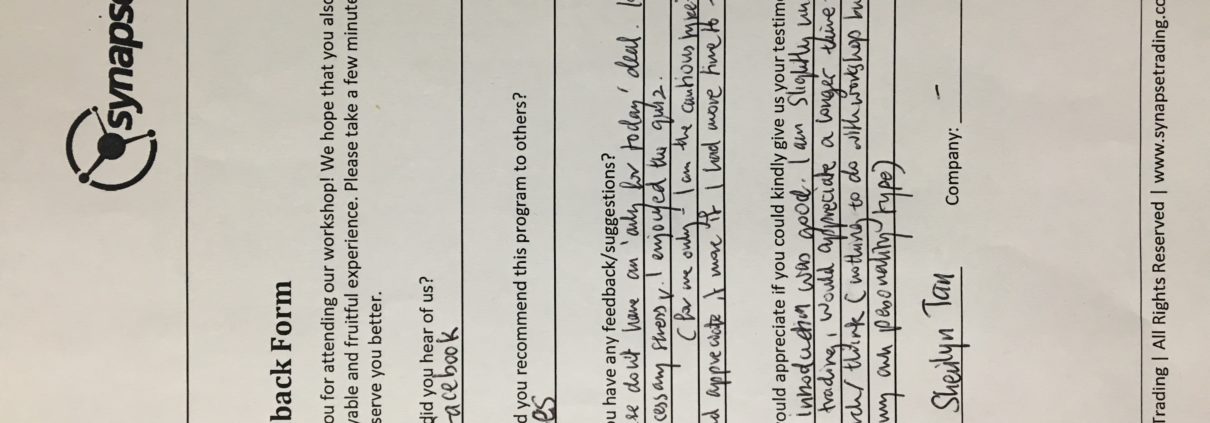 synapse
back Form
ou for attending our workshop! We hope that you also
yable and fruitful experience. Please take a few minute
serve you better.
did you hear of us?
acebook
d you recommend this program to others?
es
ou have any feedback/suggestions?
se don't have an 'only for today' deal.
cessary stress. I enjoyed the quiz.
(for me only) I am the cautious type
d appreciate it more if I had more time to
ould appreciate if you could kindly give us your testimo
introduction was good. I am slightly
trading, would appreciate a longer time
think (nothing to do with workshop bu
my own personality type)
Sheilyn Tan
Company: -
Trading | All Rights Reserved | www.synapsetrading.co